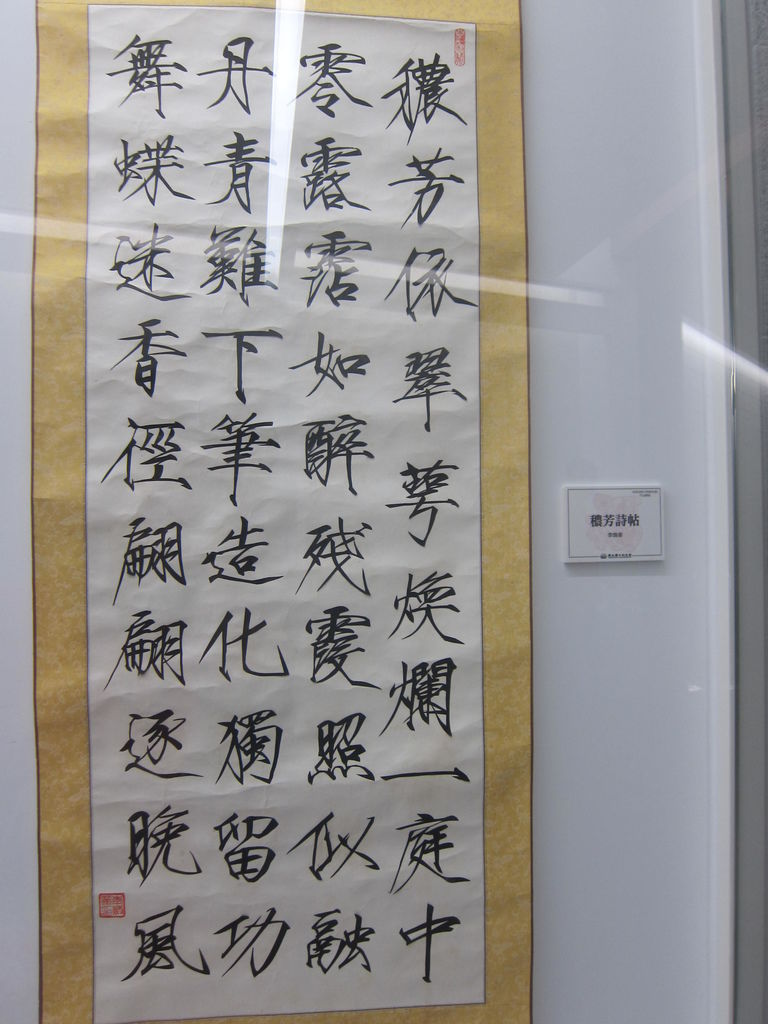 穠芳依翠萼煥爛一庭中
零露霑如醉殘霞照似融
丹青難下筆造化獨留功
舞蝶迷香徑翩翩逐晚風
穠芳詩帖